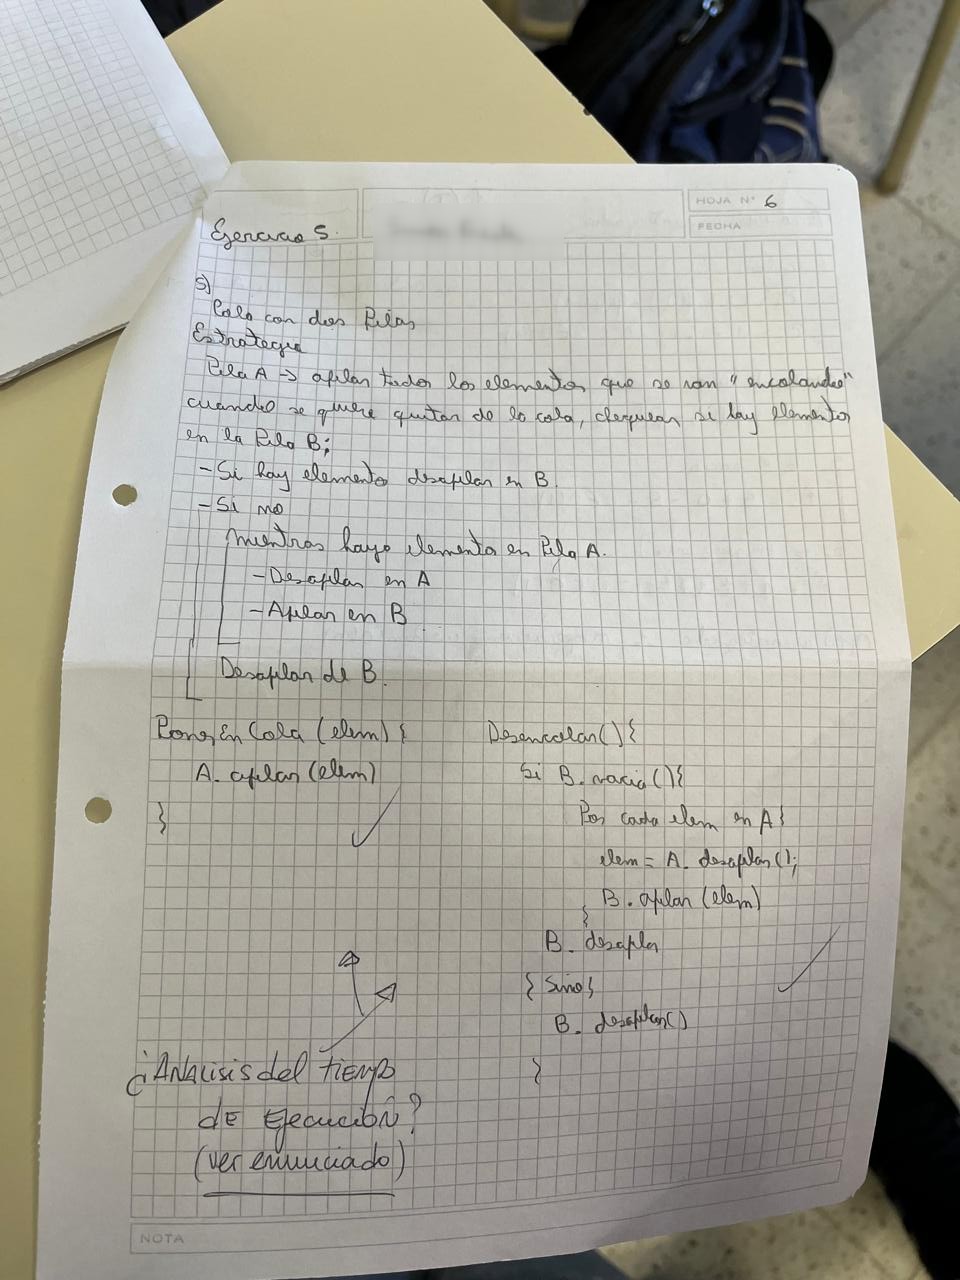 HOJA N° 6
FECHA
Ejercicio 5.
5)
Cola con dos Pilas
Estrategia
Pila A → apilar todos los elementos que se van "encolando"
cuando se quiere quitar de la cola, chequear si hay elementos
en la Pila B;
- Si hay elemento desapilar en B.
- Si no
mientras haya elemento en Pila A.
- Desapilar en A
- Apilar en B
Desapilar de B.
PonerEnCola (elem) {
A. apilar (elem)
}
Desencolar() {
Si B. vacia () {
Por cada elem en A {
elem = A. desapilar ();
B. apilar (elem)
}
B. desapilar
} sino {
B. desapilar()
}
¿Análisis del tiempo
de ejecución?
(ver enunciado)
NOTA